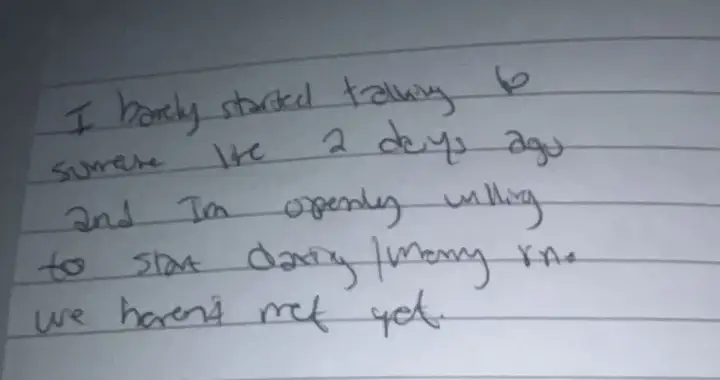 I barely started talking to
someone like 2 days ago
and Im openly willing
to start dating/marry rn.
we haven't met yet.